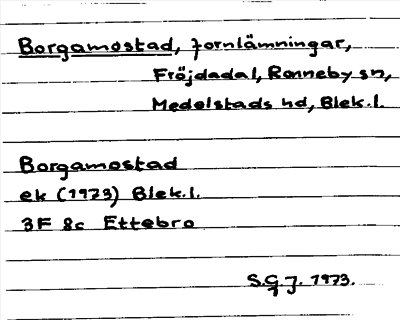 Borgamostad, fornlämningar,
Fröjdadal, Ronneby sn,
Medelstads hd, Blek.l.
Borgamostad
ek (1973) Blek.l.
3F 8c Ettebro
S.G.J. 1973.